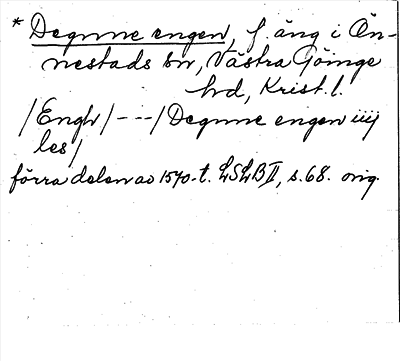 * Degnne engen, f. äng i Ön-
nestads sn, Västra Göinge
hd, Krist. l.
/Engh/ --- / Degnne engen iiij
les /
förra delen av 1570-t. LSLB II, s. 68. orig.